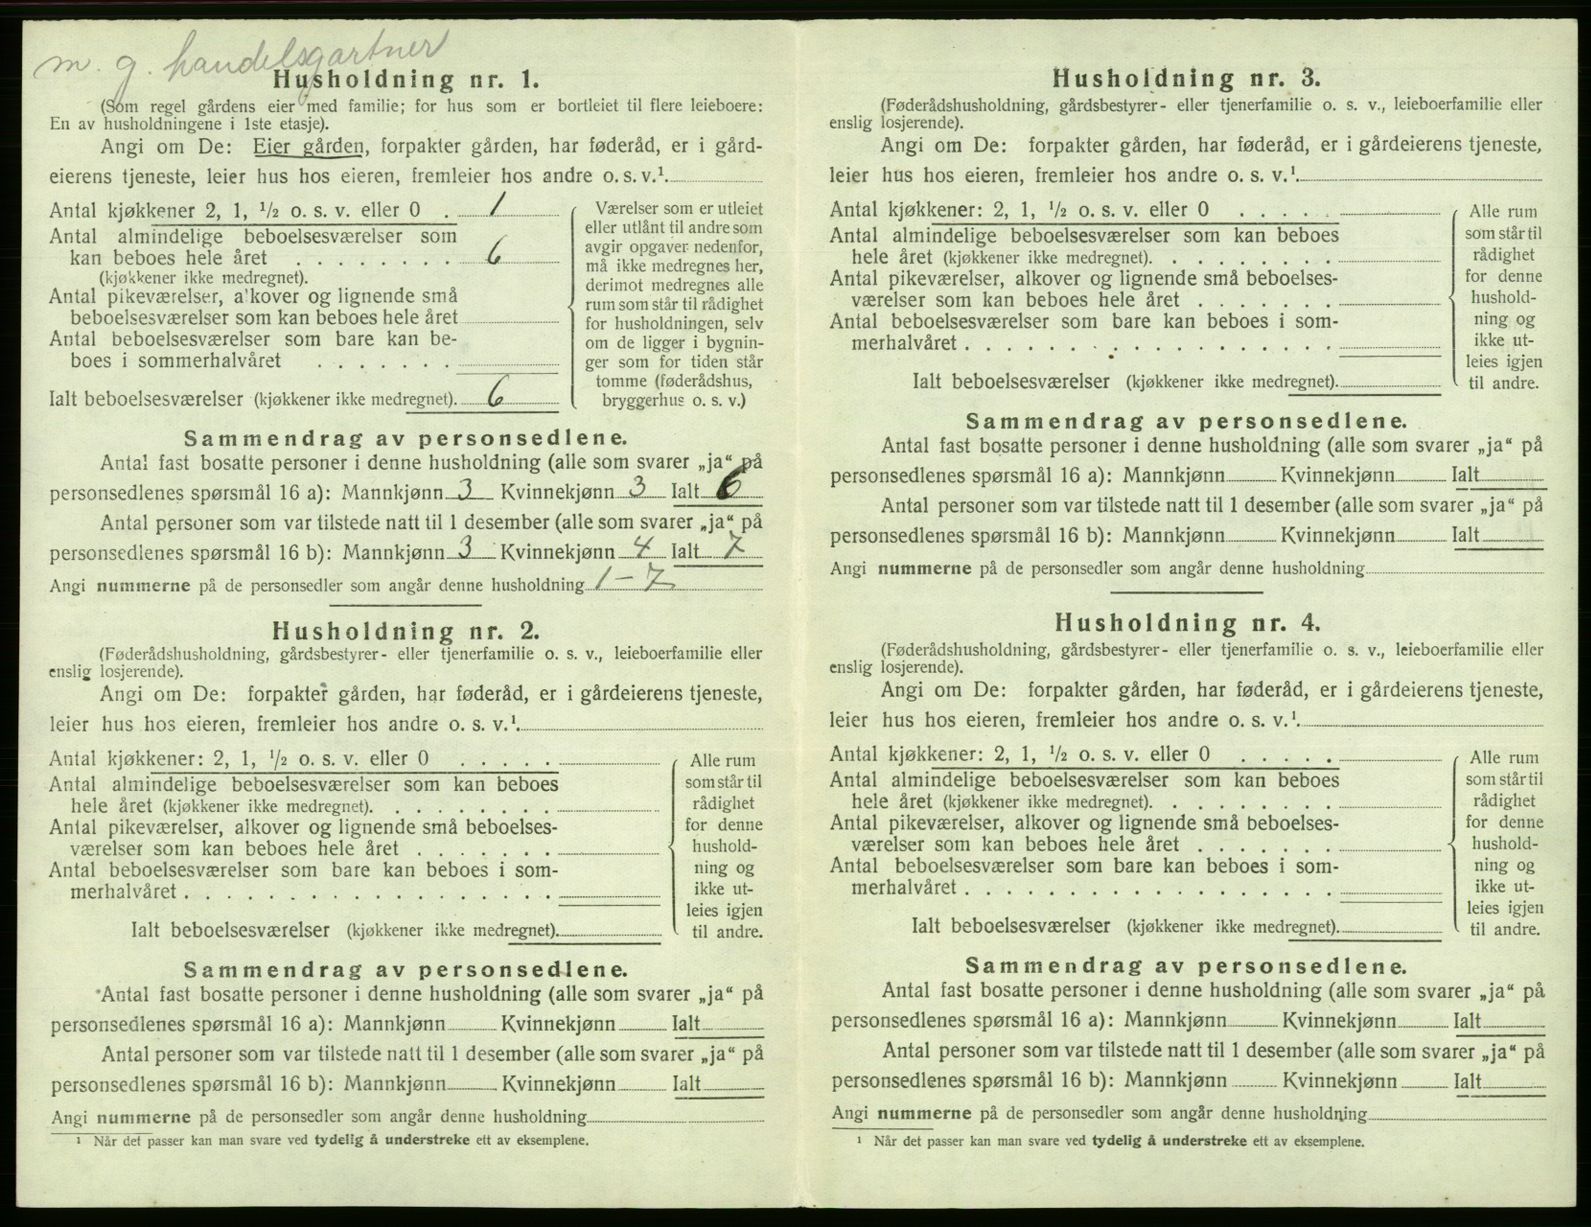 m. g. handelsgartner
Husholdning nr. 1.
(Som regel gårdens eier med familie; for hus som er bortleiet til flere leieboere:
En av husholdningene i 1ste etasje).
Angi om De: Eier gården, forpakter gården, har føderåd, er i gård-
eierens tjeneste, leier hus hos eieren, fremleier hos andre o. s. v.¹.
Antal kjøkkener 2, 1, ½ o. s. v. eller 0 . 1
Antal almindelige beboelsesværelser som
kan beboes hele året . . . . . . . . 6
(kjøkkener ikke medregnet).
Antal pikeværelser, alkover og lignende små
beboelsesværelser som kan beboes hele året
Antal beboelsesværelser som bare kan be-
boes i sommerhalvåret . . . . . . .
Ialt beboelsesværelser (kjøkkener ikke medregnet). 6
Værelser som er utleiet
eller utlånt til andre som
avgir opgaver nedenfor,
må ikke medregnes her,
derimot medregnes alle
rum som står til rådighet
for husholdningen, selv
om de ligger i bygnin-
ger som for tiden står
tomme (føderådshus,
bryggerhus o. s. v.)
Sammendrag av personsedlene.
Antal fast bosatte personer i denne husholdning (alle som svarer „ja“ på
personsedlenes spørsmål 16 a): Mannkjønn 3 Kvinnekjønn 3 Ialt 6
Antal personer som var tilstede natt til 1 desember (alle som svarer „ja“ på
personsedlenes spørsmål 16 b): Mannkjønn 3 Kvinnekjønn 4 Ialt 7
Angi nummerne på de personsedler som angår denne husholdning 1-7
Husholdning nr. 2.
(Føderådshusholdning, gårdsbestyrer- eller tjenerfamilie o. s. v., leieboerfamilie eller
enslig losjerende).
Angi om De: forpakter gården, har føderåd, er i gårdeierens tjeneste,
leier hus hos eieren, fremleier hos andre o. s. v.¹.
Antal kjøkkener: 2, 1, ½ o. s. v. eller 0 . . . . .
Antal almindelige beboelsesværelser som kan beboes
hele året (kjøkkener ikke medregnet). . . . . . . . .
Antal pikeværelser, alkover og lignende små beboelses-
værelser som kan beboes hele året . . . . . . .
Antal beboelsesværelser som bare kan beboes i som-
merhalvåret . . . . . . . . . . . . . . . . . .
Ialt beboelsesværelser (kjøkkener ikke medregnet).
Alle rum
som står til
rådighet
for denne
hushold-
ning og
ikke ut-
leies igjen
til andre.
Sammendrag av personsedlene.
Antal fast bosatte personer i denne husholdning (alle som svarer „ja“ på
personsedlenes spørsmål 16 a): Mannkjønn Kvinnekjønn Ialt
Antal personer som var tilstede natt til 1 desember (alle som svarer „ja“ på
personsedlenes spørsmål 16 b): Mannkjønn Kvinnekjønn Ialt
Angi nummerne på de personsedler som angår denne husholdning
¹ Når det passer kan man svare ved tydelig å understreke ett av eksemplene.
Husholdning nr. 3.
(Føderådshusholdning, gårdsbestyrer- eller tjenerfamilie o. s. v., leieboerfamilie eller
enslig losjerende).
Angi om De: forpakter gården, har føderåd, er i gårdeierens tjeneste,
leier hus hos eieren, fremleier hos andre o. s. v.¹.
Antal kjøkkener: 2, 1, ½ o. s. v. eller 0 . . . . .
Antal almindelige beboelsesværelser som kan beboes
hele året (kjøkkener ikke medregnet). . . . . . . . .
Antal pikeværelser, alkover og lignende små beboelses-
værelser som kan beboes hele året . . . . . . .
Antal beboelsesværelser som bare kan beboes i som-
merhalvåret . . . . . . . . . . . . . . . . . .
Ialt beboelsesværelser (kjøkkener ikke medregnet).
Alle rum
som står til
rådighet
for denne
hushold-
ning og
ikke ut-
leies igjen
til andre.
Sammendrag av personsedlene.
Antal fast bosatte personer i denne husholdning (alle som svarer „ja“ på
personsedlenes spørsmål 16 a): Mannkjønn Kvinnekjønn Ialt
Antal personer som var tilstede natt til 1 desember (alle som svarer „ja“ på
personsedlenes spørsmål 16 b): Mannkjønn Kvinnekjønn Ialt
Angi nummerne på de personsedler som angår denne husholdning
Husholdning nr. 4.
(Føderådshusholdning, gårdsbestyrer- eller tjenerfamilie o. s. v., leieboerfamilie eller
enslig losjerende).
Angi om De: forpakter gården, har føderåd, er i gårdeierens tjeneste,
leier hus hos eieren, fremleier hos andre o. s. v.¹.
Antal kjøkkener: 2, 1, ½ o. s. v. eller 0 . . . . .
Antal almindelige beboelsesværelser som kan beboes
hele året (kjøkkener ikke medregnet). . . . . . . . .
Antal pikeværelser, alkover og lignende små beboelses-
værelser som kan beboes hele året . . . . . . .
Antal beboelsesværelser som bare kan beboes i som-
merhalvåret . . . . . . . . . . . . . . . . . .
Ialt beboelsesværelser (kjøkkener ikke medregnet).
Alle rum
som står til
rådighet
for denne
hushold-
ning og
ikke ut-
leies igjen
til andre.
Sammendrag av personsedlene.
Antal fast bosatte personer i denne husholdning (alle som svarer „ja“ på
personsedlenes spørsmål 16 a): Mannkjønn Kvinnekjønn Ialt
Antal personer som var tilstede natt til 1 desember (alle som svarer „ja“ på
personsedlenes spørsmål 16 b): Mannkjønn Kvinnekjønn Ialt
Angi nummerne på de personsedler som angår denne husholdning
¹ Når det passer kan man svare ved tydelig å understreke ett av eksemplene.